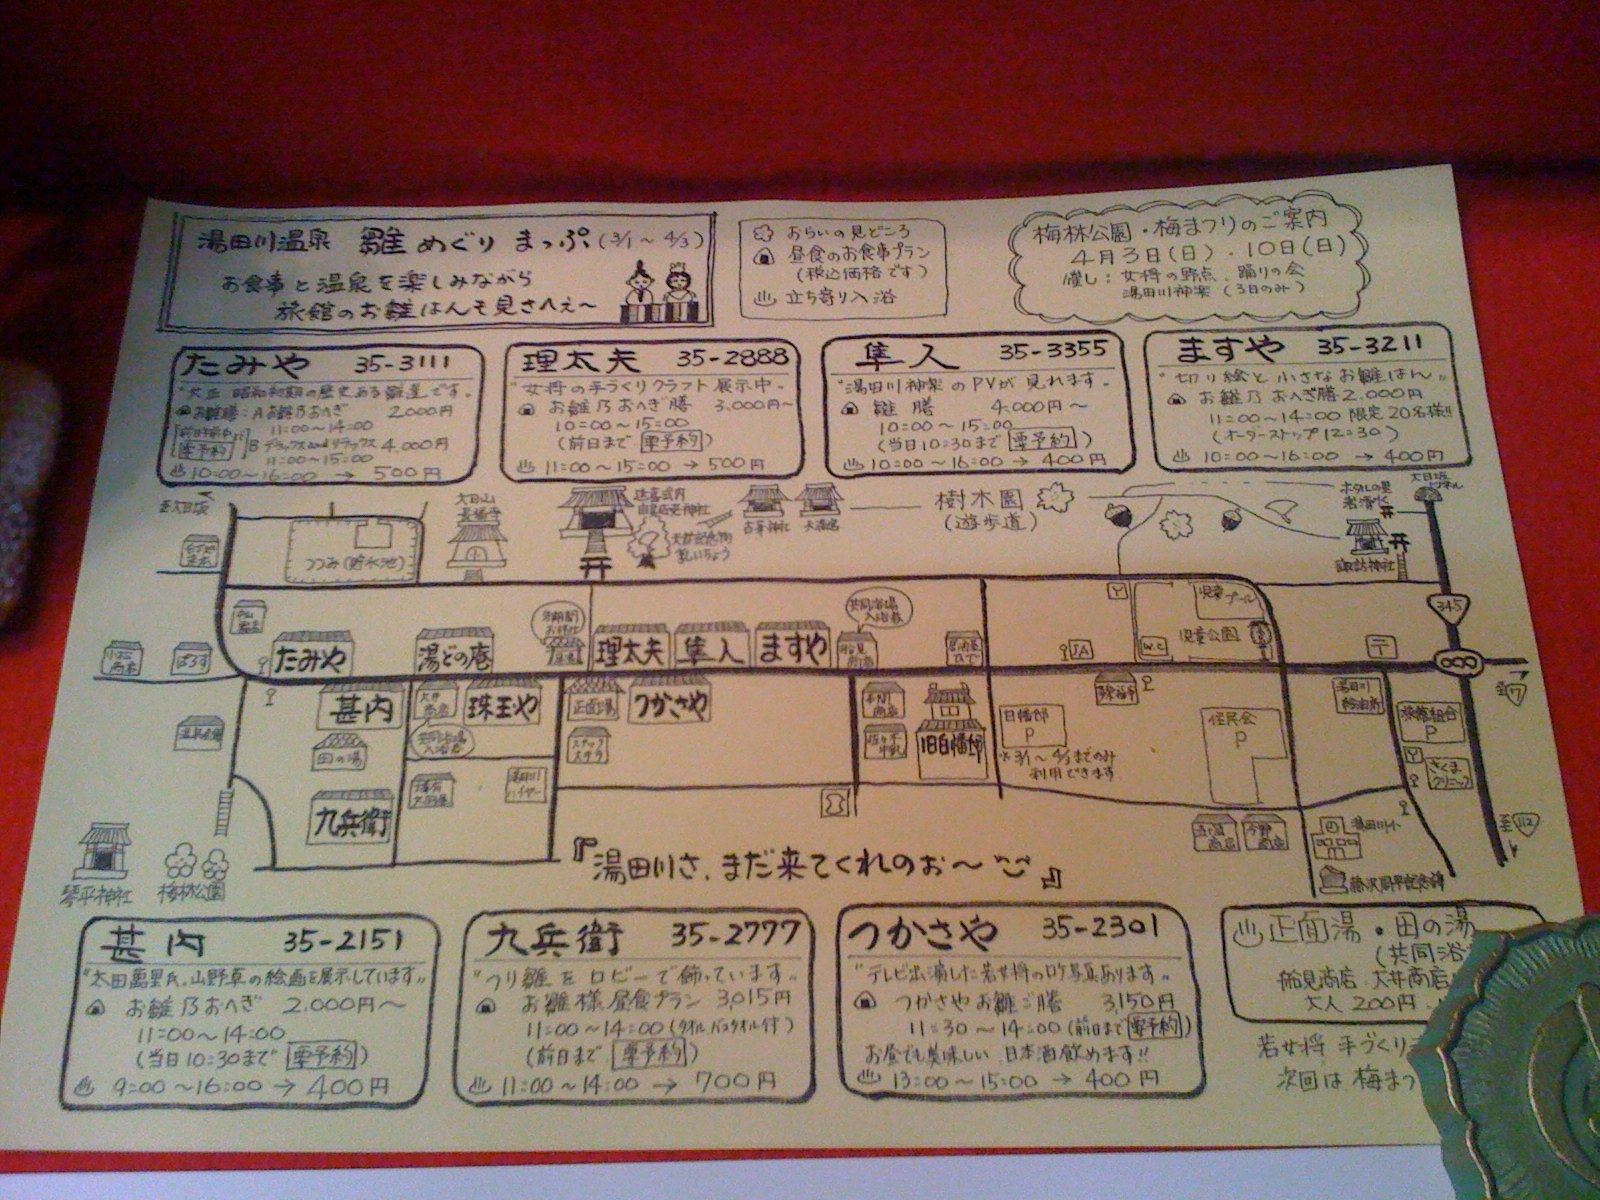 湯田川温泉 雛めぐり まっぷ(3/1～4/3)
お食事と温泉を楽しみながら
旅館のお雛はんを見さへえ～
おらいの見どころ
昼食のお食事プラン
(税込価格です)
立ち寄り入浴
梅林公園・梅まつりのご案内
4月3日(日)、10日(日)
催し：女将の野点、踊りの会
湯田川神楽(3日のみ)
たみや 35-3111
"大正 昭和初期の歴史ある雛達です。
お雛膳：Aお雛乃おへぎ 2,000円
11:00～14:00
要予約
4,000円
11:00～15:00
10:00～16:00 → 500円
理太夫 35-2888
"女将の手づくりクラフト展示中"
お雛乃おへぎ膳 3,000円～
10:00～15:00
(前日まで 要予約)
11:00～15:00 → 500円
隼人 35-3355
"湯田川神楽のPVが見れます"
雛膳 4,000円～
10:00～15:00
(当日10:30まで 要予約)
10:00～16:00 → 400円
ますや 35-3211
"切り絵と小さなお雛はん"
お雛乃おへぎ膳 2,000円
11:00～14:00 限定20名様!!
(オーダーストップ12:30)
10:00～16:00 → 400円
つつみ(貯水池)
樹木園
(遊歩道)
諏訪神社
345
児童プール
児童公園
たみや
湯どの庵
理太夫
隼人
ますや
JA
W.C
甚内
珠玉や
正面湯
つかさや
田の湯
九兵衛
旧白幡邸
P
※3/1～4/3までのみ
利用できます
住民会
P
旅館組合
P
至7
至112
琴平神社
梅林公園
湯田川小
『湯田川さ、まだ来てくれのぉ～』
甚内 35-2151
"太田萬里氏、山野草の絵画を展示しています"
お雛乃おへぎ 2,000円～
11:00～14:00
(当日10:30まで 要予約)
9:00～16:00 → 400円
九兵衛 35-2777
"つり雛をロビーで飾っています"
お雛様昼食プラン 3,015円
11:00～14:00 (タオル・バスタオル付)
(前日まで 要予約)
11:00～14:00 → 700円
つかさや 35-2301
つかさやお雛ご膳 3,150円
11:30～14:00 (前日まで 要予約)
お昼でも美味しい 日本酒飲めます!!
13:00～15:00 → 400円
正面湯・田の湯
(共同浴
船見商店、大井商店
大人 200円
若女将 手づくり
次回は、梅まつ